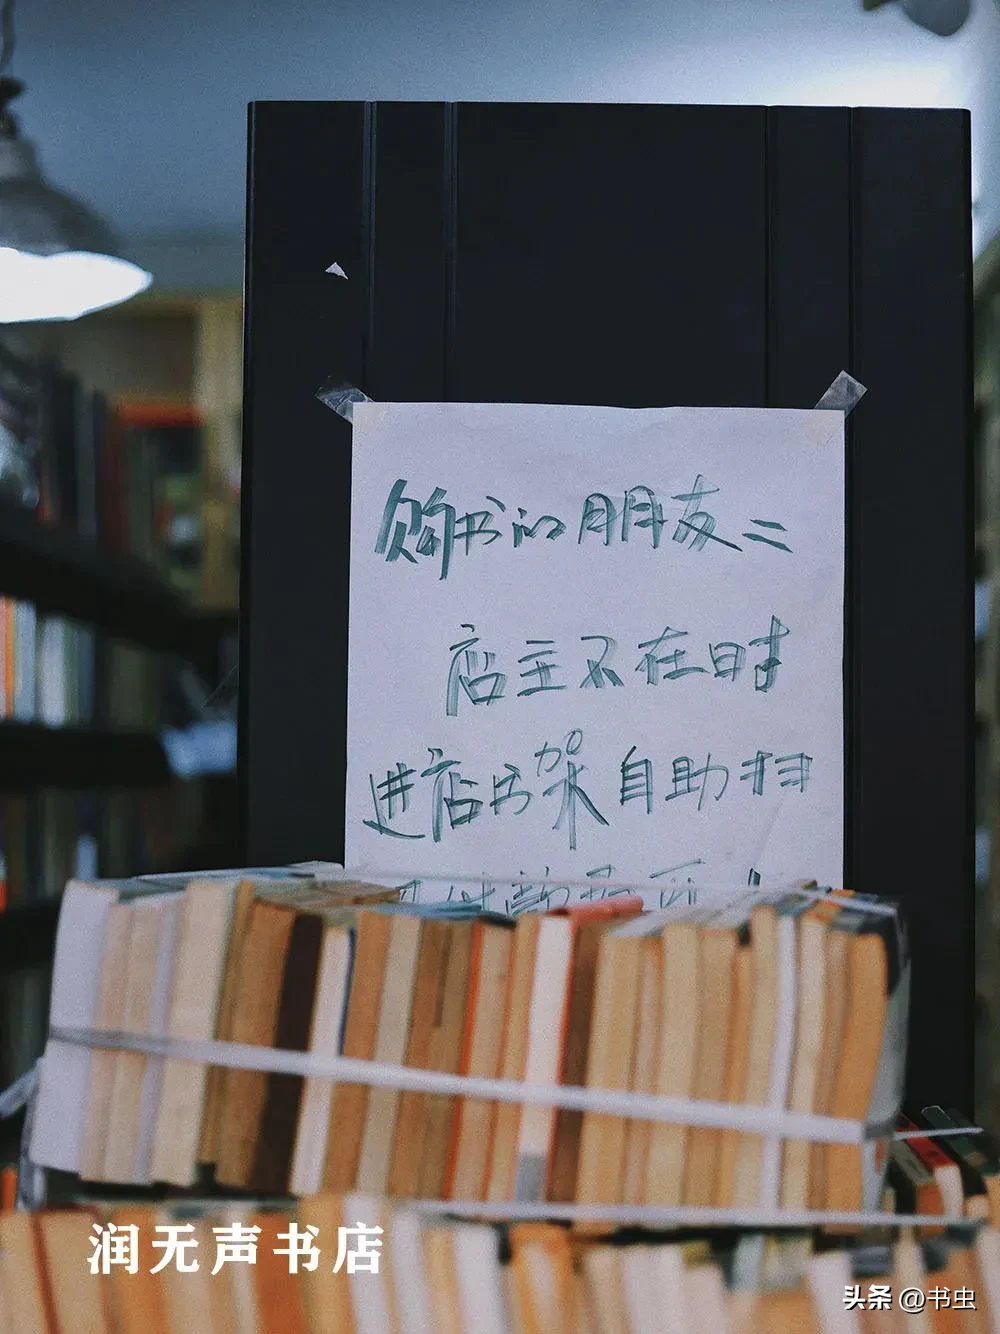 购书的朋友：
店主不在时
进店书架自助扫
润无声书店
头条 @书虫